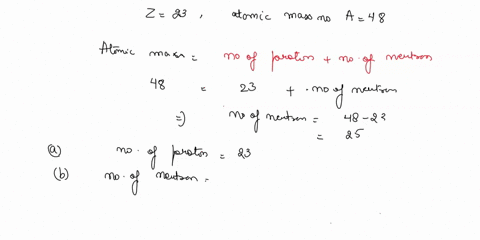 Z = 23 , atomic mass no A = 48
Atomic mass = no of proton + no. of neutron
48 = 23 + no of neutron
=) no of neutron = 48 - 23
= 25
(a) no. of proton = 23
(b) no. of neutron =